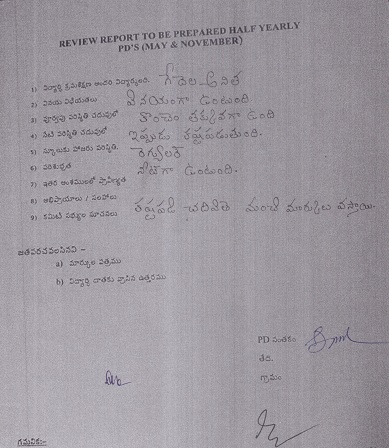 REVIEW REPORT TO BE PREPARED HALF YEARLY
PD'S (MAY & NOVEMBER)
1) విద్యార్థి క్రమశిక్షణ అందరి విద్యార్థులది. గేదెల అనిత
2) వినయ విధేయతలు వినయంగా ఉంటుంది
3) పూర్వపు పరిస్థితి చదువులో కొంచం తక్కువగా ఉంది
4) నేటి పరిస్థితి చదువులో ఇప్పుడు కష్టపడుతుంది.
5) స్కూలుకు హాజరు పరిస్థితి. రెగ్యులర్
6) పరిశుభ్రత నీట్‌గా ఉంటుంది.
7) ఇతర అంశములలో ప్రావీణ్యత
8) అభిప్రాయాలు / సలహాలు
9) కమిటీ సభ్యుల సూచనలు కష్టపడి చదివితే మంచి మార్కులు వస్తాయి.
జతపరచవలసినవి :-
a) మార్కుల పత్రము
b) విద్యార్థి దాతకు వ్రాసిన ఉత్తరము
PD సంతకం
తేది.
గ్రామం
గమనిక:-